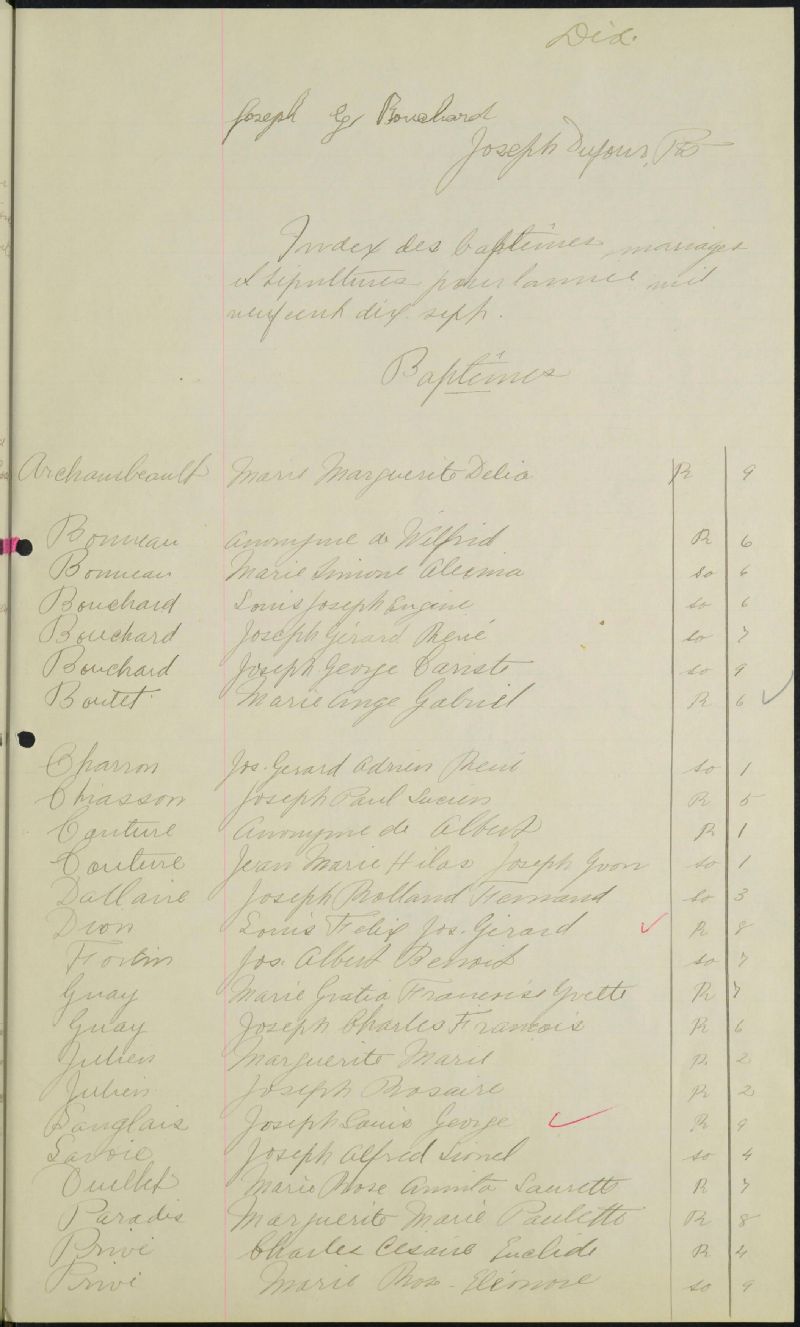 Dix.
Joseph Eg Bouchard
Joseph Dufour, Ptr
Index des baptêmes, mariages
et sépultures pour l'année mil
neuf cent dix-sept.
Baptêmes
Archambeault Marie Marguerite Delia R 9
Bonneau Anonyme de Wilfrid R 6
Bonneau Marie Simone Alexina so 6
Bouchard Louis Joseph Eugène so 6
Bouchard Joseph Gérard René so 7
Bouchard Joseph George Evariste so 9
Boutet Marie Ange Gabriel R 6
Charron Jos. Gerard Adrien René so 1
Chiasson Joseph Paul Lucien R 5
Couture Anonyme de Albert R 1
Couture Jean Marie Hilas Joseph Yvon so 1
Dallaire Joseph Rolland Fernand so 3
Dion Louis Felix Jos. Gérard R 8
Fortin Jos. Albert Benoit so 7
Guay Marie Gratia Françoise Yvette R 7
Guay Joseph Charles François R 6
Julien Marguerite Marie R 2
Julien Joseph Rosaire R 2
Langlais Joseph Louis George R 9
Savoie Joseph Alfred Lionel so 4
Ouellet Marie Rose Annita Laurette R 7
Paradis Marguerite Marie Paulette R 8
Privé Charles Cesaire Euclide R 4
Privé Marie Rose-Eléonore so 9